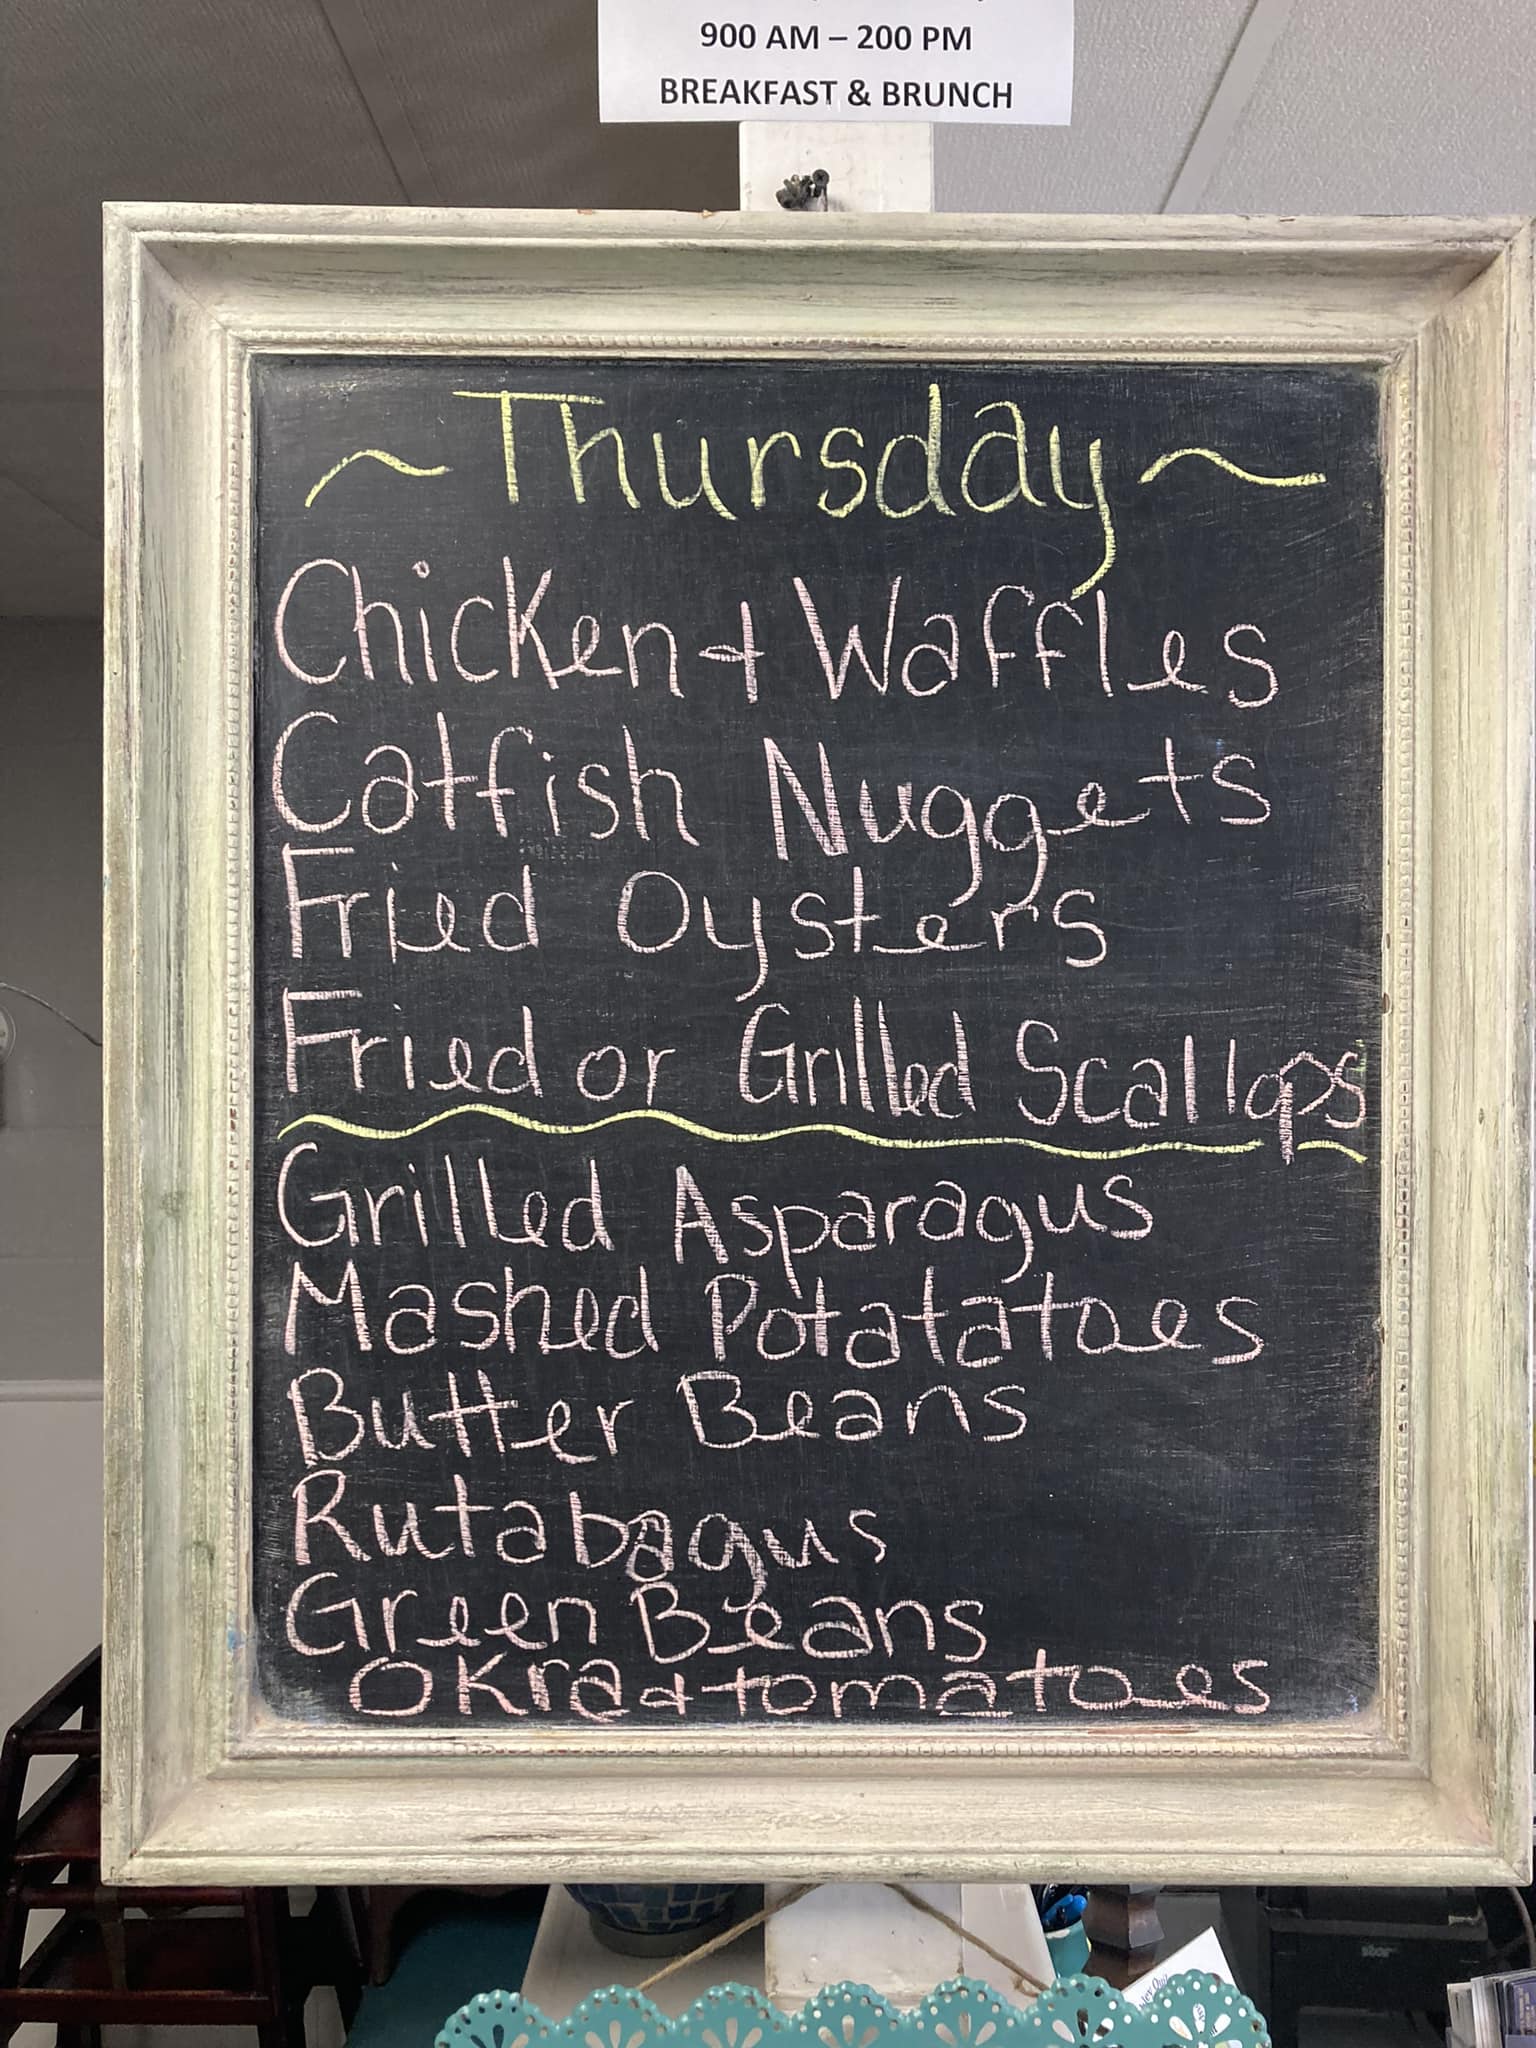 900 AM – 200 PM
BREAKFAST & BRUNCH
~ Thursday ~
Chicken + Waffles
Catfish Nuggets
Fried Oysters
Fried or Grilled Scallops
Grilled Asparagus
Mashed Potatatoes
Butter Beans
Rutabagus
Green Beans
Okra + tomatoes
star